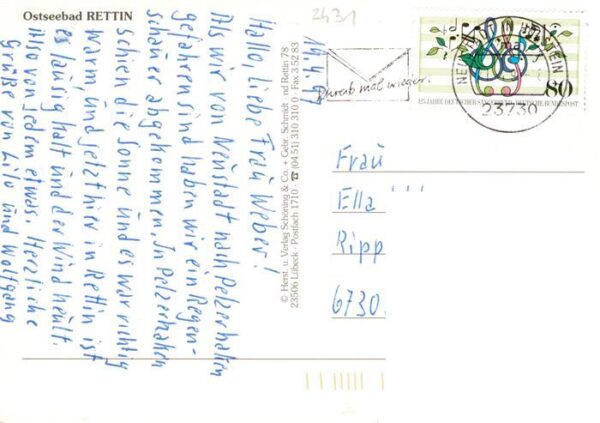 Ostseebad RETTIN
2431
14.4.9
Hallo liebe Frau Weber!
Als wir von Neustadt nach Pelzerhaken
gefahren sind haben wir ein Regen-
schauer abgekommen. In Pelzerhaken
schien die Sonne und es war richtig
warm und jetzt hier in Rettin ist
es lausig kalt und der Wind heult.
Also von jedem etwas. Herzliche
Grüße von Lilo und Wolfgang
© Herst. u. Verlag Schöning & Co. + Gebr. Schmidt
23506 Lübeck · Postfach 1710 · ☎ (04 51) 310 310 0 · Fax 4 52 83
nd Rettin 78
Schreib mal wieder.
NEUSTADT IN HOLSTEIN
23730
125 JAHRE DEUTSCHER SÄNGERBUND DEUTSCHE BUNDESPOST
80
Frau
Ella
Ripp
6730